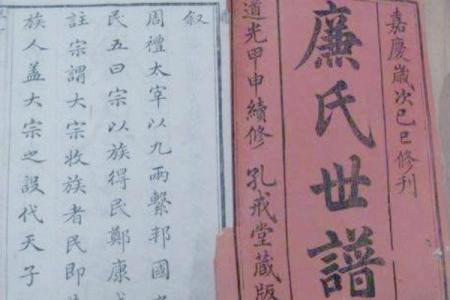 嘉慶歲次己巳修刊
廉氏世譜
道光甲申續修 孔戒堂蔵版
叙
周禮太宰以九兩繫邦國
民五曰宗以族得民鄭康
註宗謂大宗收族者民即
族人蓋大宗之設代天子